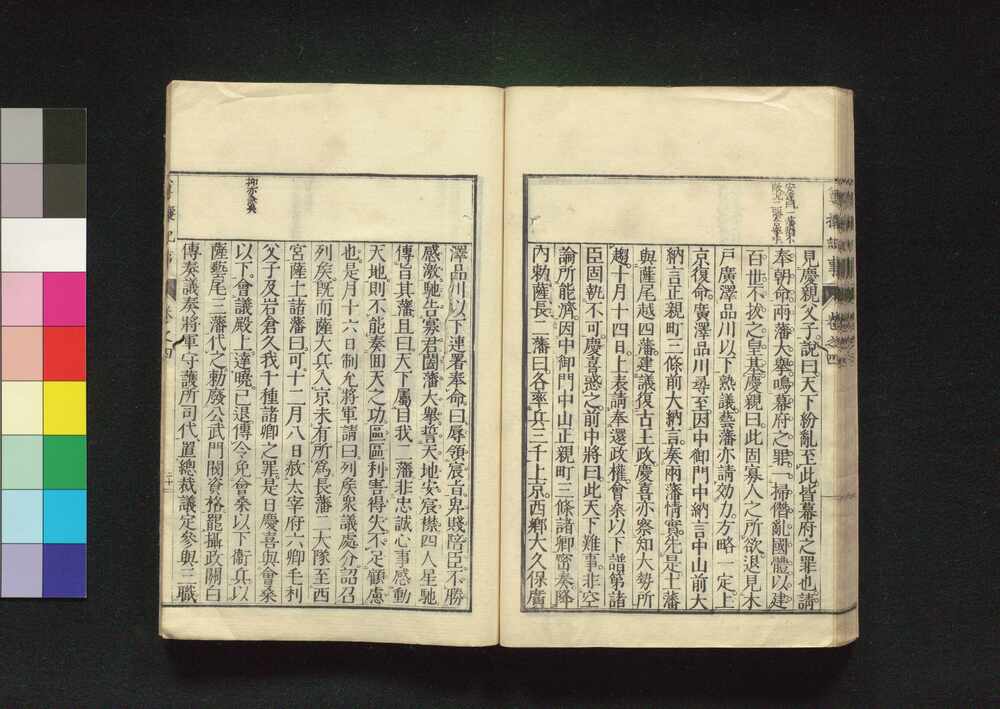 見慶親父子說曰天下紛亂至此皆幕府之罪也請
奉朝命兩藩大舉鳴幕府之罪一掃僭亂國體以建
百世不拔之皇基慶親曰此固寡人之所欲退見木
戶廣澤品川以下熟議藝藩亦請効力方略一定上
京復命廣澤品川尋至因中御門中納言中山前大
納言正親町三條前大納言奏兩藩情實先是土藩
與薩尾越四藩建議復古王政慶喜亦察知大勢所
趨十月十四日上表請奉還政權會桑以下譜第諸
臣固執不可慶喜惑之前中將曰此天下難事非空
論所能濟因中御門中山正親町三條諸卿密奏降
內勅薩長二藩曰各率兵三千上京西鄉大久保廣
澤品川以下連署奉命曰辱領宸旨卑賤陪臣不勝
感激馳告寡君闔藩大舉誓天地安宸襟四人星馳
傳旨其藩且曰天下屬目我二藩非忠誠心事感動
天地則不能奏回天之功區區利害得失不足顧慮
也是月十六日制允將軍請曰列矦衆議處分詔召
列矦既而薩大兵入京未有所爲長藩二大隊至西
宮薩土諸藩曰可十二月八日赦太宰府六卿毛利
父子及岩倉久我千種諸卿之罪是日慶喜與會桑
以下會議殿上達曉已退傳令免會桑以下衞兵以
薩藝尾三藩代之勅廢公武門閥資格罷攝政關白
傳奏議奏將軍守護所司代置總裁議定參與三職